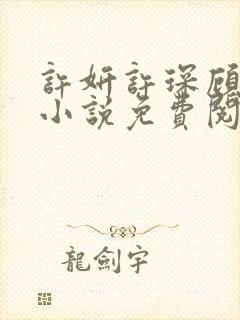 許妍許琛顧
小說免費閱
龍劍宇